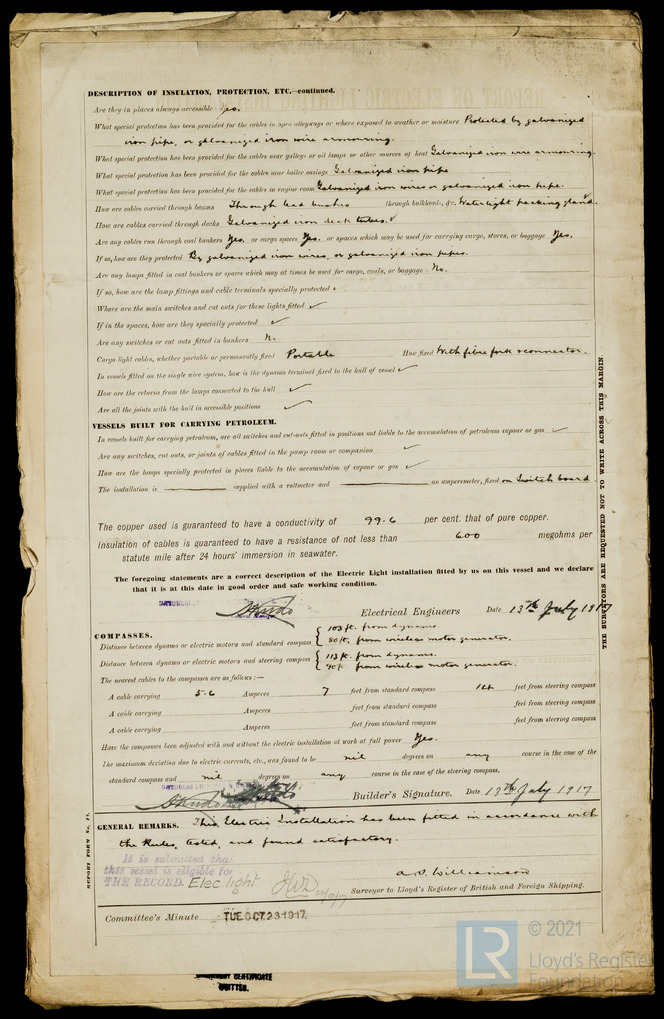 DESCRIPTION OF INSULATION, PROTECTION, ETC.—continued.
Are they in places always accessible Yes.
What special protection has been provided for the cables in open alleyways or where exposed to weather or moisture Protected by galvanized
iron pipe, or galvanized iron wire armouring.
What special protection has been provided for the cables near galleys or oil lamps or other sources of heat Galvanized iron wire armouring.
What special protection has been provided for the cables near boiler casings Galvanized iron pipe
What special protection has been provided for the cables in engine room Galvanized iron wires or galvanized iron pipe.
How are cables carried through beams Through lead bushes through bulkheads, &c. Watertight packing gland.
How are cables carried through decks Galvanized iron deck tubes. ✓
Are any cables run through coal bunkers Yes. or cargo spaces Yes. or spaces which may be used for carrying cargo, stores, or baggage Yes.
If so, how are they protected By galvanized iron wires, or galvanized iron pipes.
Are any lamps fitted in coal bunkers or spaces which may at times be used for cargo, coals, or baggage No.
If so, how are the lamp fittings and cable terminals specially protected
Where are the main switches and cut outs for these lights fitted ✓
If in the spaces, how are they specially protected ✓
Are any switches or cut outs fitted in bunkers No
Cargo light cables, whether portable or permanently fixed Portable How fixed With fibre fork & connector.
In vessels fitted on the single wire system, how is the dynamo terminal fixed to the hull of vessel ✓
How are the returns from the lamps connected to the hull ✓
Are all the joints with the hull in accessible positions ✓
VESSELS BUILT FOR CARRYING PETROLEUM.
In vessels built for carrying petroleum, are all switches and cut-outs fitted in positions not liable to the accumulation of petroleum vapour or gas ✓
Are any switches, cut outs, or joints of cables fitted in the pump room or companion ✓
How are the lamps specially protected in places liable to the accumulation of vapour or gas ✓
The installation is supplied with a voltmeter and an amperemeter, fixed on Switch board.
The copper used is guaranteed to have a conductivity of 99.6 per cent. that of pure copper.
Insulation of cables is guaranteed to have a resistance of not less than 600 megohms per
statute mile after 24 hours' immersion in seawater.
The foregoing statements are a correct description of the Electric Light installation fitted by us on this vessel and we declare
that it is at this date in good order and safe working condition.
Electrical Engineers Date 13th July 1917
COMPASSES.
Distance between dynamo or electric motors and standard compass { 103 ft. from dynamo.
80 ft. from wireless motor generator.
Distance between dynamo or electric motors and steering compass { 113 ft. from dynamo.
90 ft. from wireless motor generator.
The nearest cables to the compasses are as follows:—
A cable carrying 5.6 Amperes 7 feet from standard compass 14 feet from steering compass
A cable carrying Amperes feet from standard compass feet from steering compass
A cable carrying Amperes feet from standard compass feet from steering compass
Have the compasses been adjusted with and without the electric installation at work at full power Yes.
The maximum deviation due to electric currents, etc., was found to be nil degrees on any course in the case of the
standard compass and nil degrees on any course in the case of the steering compass.
Builder's Signature. Date 13th July 1917
GENERAL REMARKS. This Electric Installation has been fitted in accordance with
the Rules, tested, and found satisfactory.
It is submitted that
this vessel is eligible for
THE RECORD. Elec light.
A. D. Williamson
Surveyor to Lloyd's Register of British and Foreign Shipping.
Committee's Minute TUE. OCT. 23 1917.
CERTIFICATE
WRITTEN.
THE SURVEYORS ARE REQUESTED NOT TO WRITE ACROSS THIS MARGIN
REPORT FORM No. 11.
LR
© 2021
Lloyd's Register
Foundation